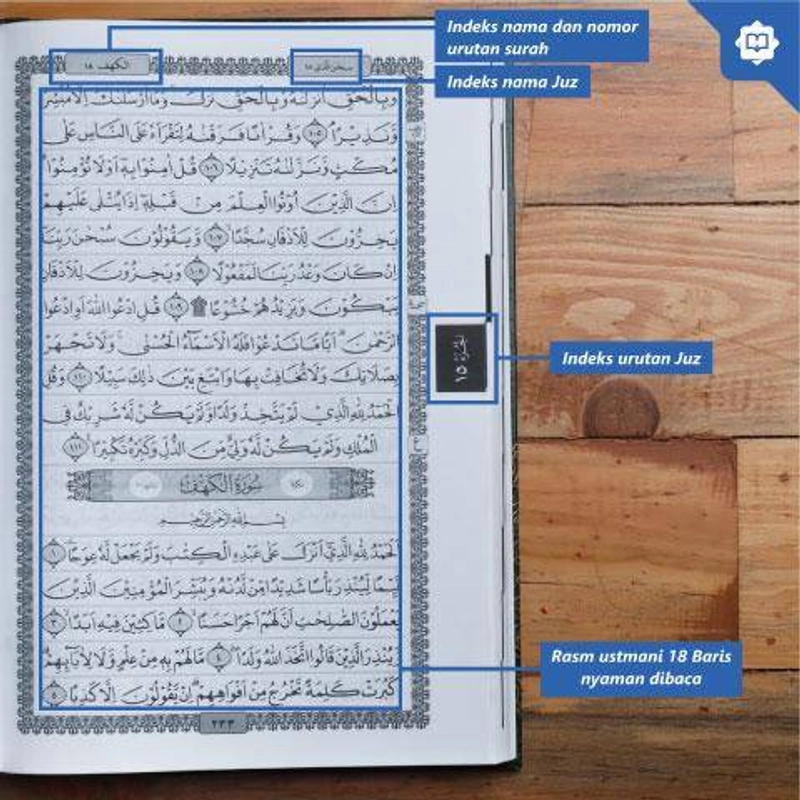 Indeks nama dan nomor
urutan surah
Indeks nama Juz
الكهف ١٨
سبحن الذي ١٥
وَبِالْحَقِّ اَنْزَلْنٰهُ وَبِالْحَقِّ نَزَلَۗ وَمَآ اَرْسَلْنٰكَ اِلَّا مُبَشِّرًا
وَّنَذِيْرًاۘ ١٠٥ وَقُرْاٰنًا فَرَقْنٰهُ لِتَقْرَاَهٗ عَلَى النَّاسِ عَلٰى
مُكْثٍ وَّنَزَّلْنٰهُ تَنْزِيْلًا ١٠٦ قُلْ اٰمِنُوْا بِهٖٓ اَوْ لَا تُؤْمِنُوْاۗ
اِنَّ الَّذِيْنَ اُوْتُوا الْعِلْمَ مِنْ قَبْلِهٖٓ اِذَا يُتْلٰى عَلَيْهِمْ
يَخِرُّوْنَ لِلْاَذْقَانِ سُجَّدًاۙ ١٠٧ وَّيَقُوْلُوْنَ سُبْحٰنَ رَبِّنَآ
اِنْ كَانَ وَعْدُ رَبِّنَا لَمَفْعُوْلًا ١٠٨ وَيَخِرُّوْنَ لِلْاَذْقَانِ
يَبْكُوْنَ وَيَزِيْدُهُمْ خُشُوْعًا ۩ ١٠٩ قُلِ ادْعُوا اللّٰهَ اَوِ ادْعُوا
الرَّحْمٰنَۗ اَيًّا مَّا تَدْعُوْا فَلَهُ الْاَسْمَاۤءُ الْحُسْنٰىۚ وَلَا تَجْهَرْ
بِصَلَاتِكَ وَلَا تُخَافِتْ بِهَا وَابْتَغِ بَيْنَ ذٰلِكَ سَبِيْلًا ١١٠ وَقُلِ
الْحَمْدُ لِلّٰهِ الَّذِيْ لَمْ يَتَّخِذْ وَلَدًا وَّلَمْ يَكُنْ لَّهٗ شَرِيْكٌ فِى
الْمُلْكِ وَلَمْ يَكُنْ لَّهٗ وَلِيٌّ مِّنَ الذُّلِّ وَكَبِّرْهُ تَكْبِيْرًا ١١١
سُوْرَةُ الْكَهْفِ
بِسْمِ اللّٰهِ الرَّحْمٰنِ الرَّحِيْمِ
اَلْحَمْدُ لِلّٰهِ الَّذِيْٓ اَنْزَلَ عَلٰى عَبْدِهِ الْكِتٰبَ وَلَمْ يَجْعَلْ لَّهٗ عِوَجًاۜ ١
قَيِّمًا لِّيُنْذِرَ بَأْسًا شَدِيْدًا مِّنْ لَّدُنْهُ وَيُبَشِّرَ الْمُؤْمِنِيْنَ الَّذِيْنَ
يَعْمَلُوْنَ الصّٰلِحٰتِ اَنَّ لَهُمْ اَجْرًا حَسَنًاۙ ٢ مَّاكِثِيْنَ فِيْهِ اَبَدًاۙ ٣
وَّيُنْذِرَ الَّذِيْنَ قَالُوا اتَّخَذَ اللّٰهُ وَلَدًاۖ ٤ مَّا لَهُمْ بِهٖ مِنْ عِلْمٍ وَّلَا لِاٰبَاۤىِٕهِمْۗ
كَبُرَتْ كَلِمَةً تَخْرُجُ مِنْ اَفْوَاهِهِمْۗ اِنْ يَّقُوْلُوْنَ اِلَّا كَذِبًا ٥
٢٣٣
الجزء ١٥
Indeks urutan Juz
Rasm ustmani 18 Baris
nyaman dibaca